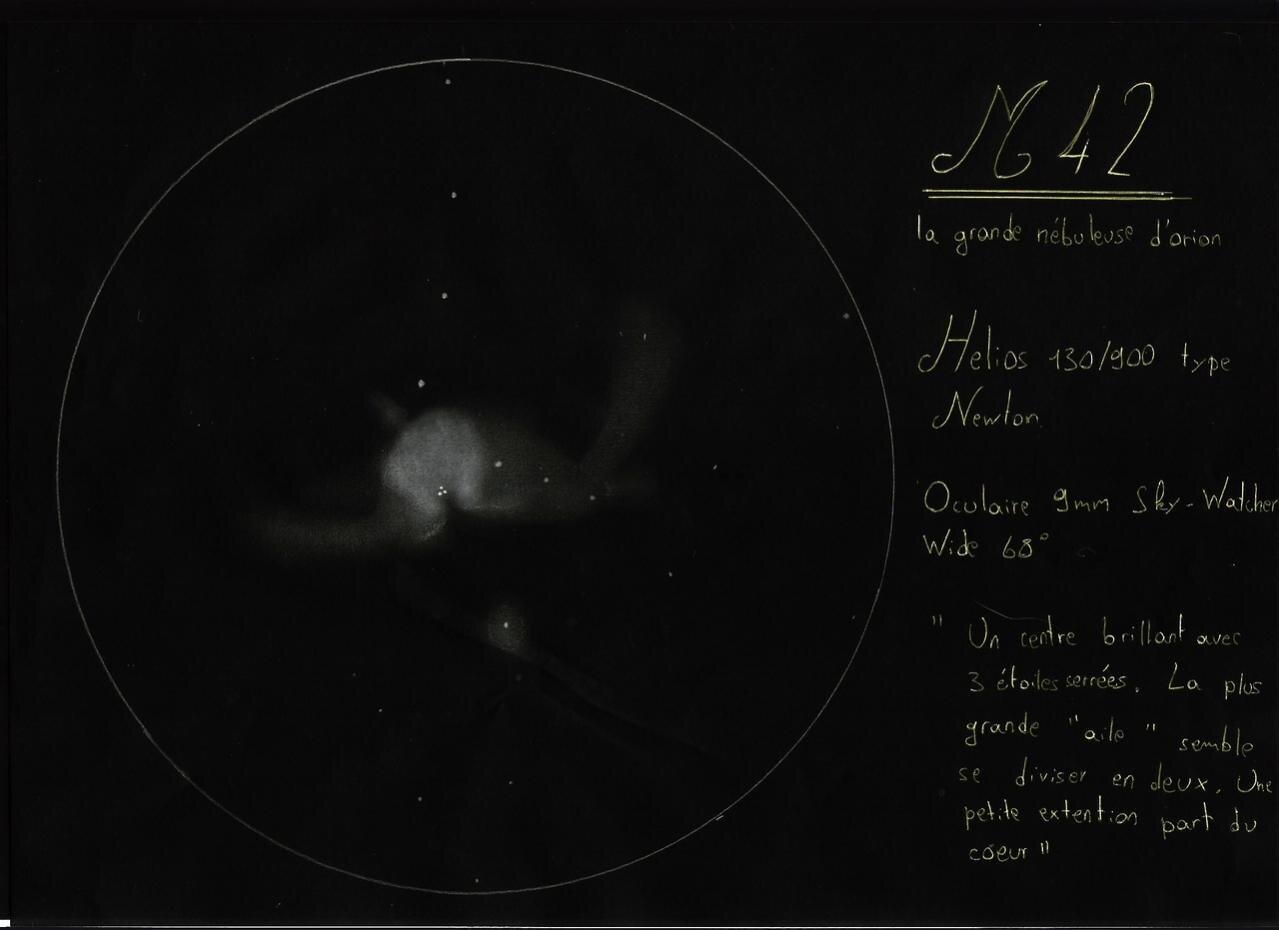 M 42
la grande nébuleuse d'orion
Helios 130/900 type
Newton
Oculaire 9mm Sky-Watcher
Wide 68°
" Un centre brillant avec
3 étoiles serrées. La plus
grande "aile" semble
se diviser en deux. Une
petite extention part du
coeur"